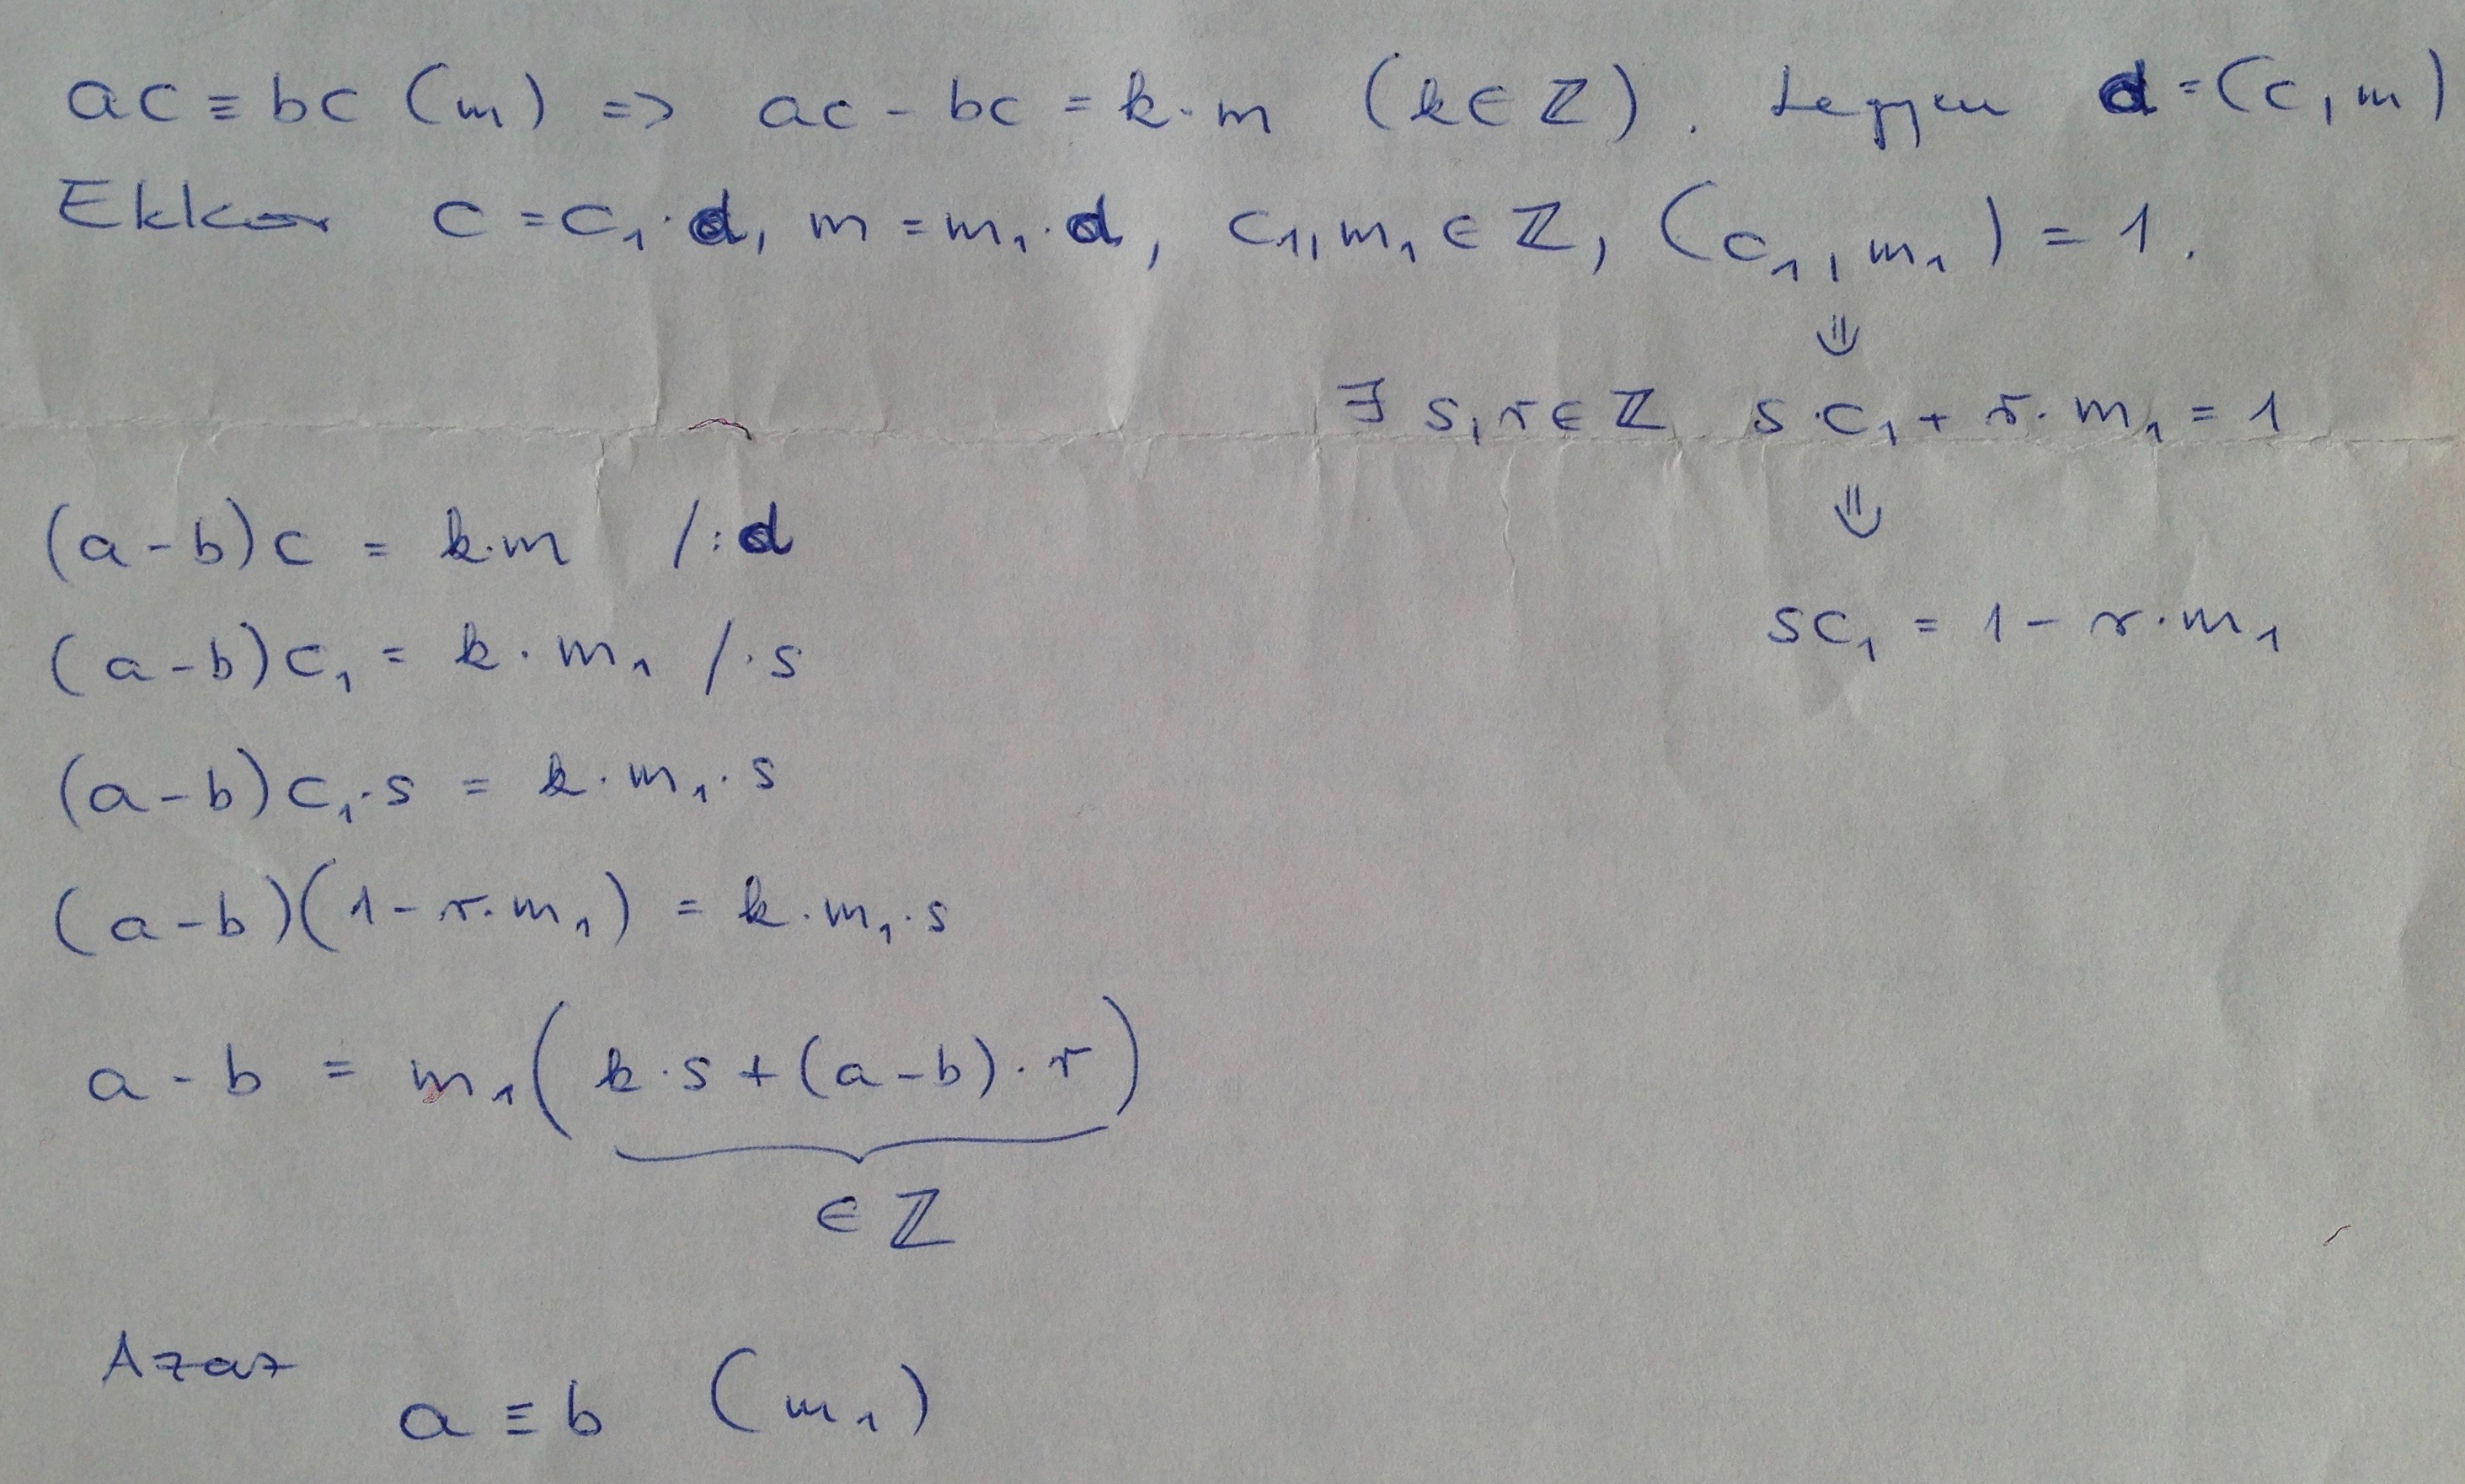 ac ≡ bc (m) => ac - bc = k·m (k∈ℤ). Legyen d = (c, m)
Ekkor c = c₁·d, m = m₁·d, c₁, m₁ ∈ ℤ, (c₁, m₁) = 1.
⇓
∃ s, r ∈ ℤ s·c₁ + r·m₁ = 1
⇓
sc₁ = 1 - r·m₁
(a-b)c = k·m /:d
(a-b)c₁ = k·m₁ /·s
(a-b)c₁·s = k·m₁·s
(a-b)(1-r·m₁) = k·m₁·s
a-b = m₁(k·s+(a-b)·r)
∈ ℤ
Azaz
a ≡ b (m₁)